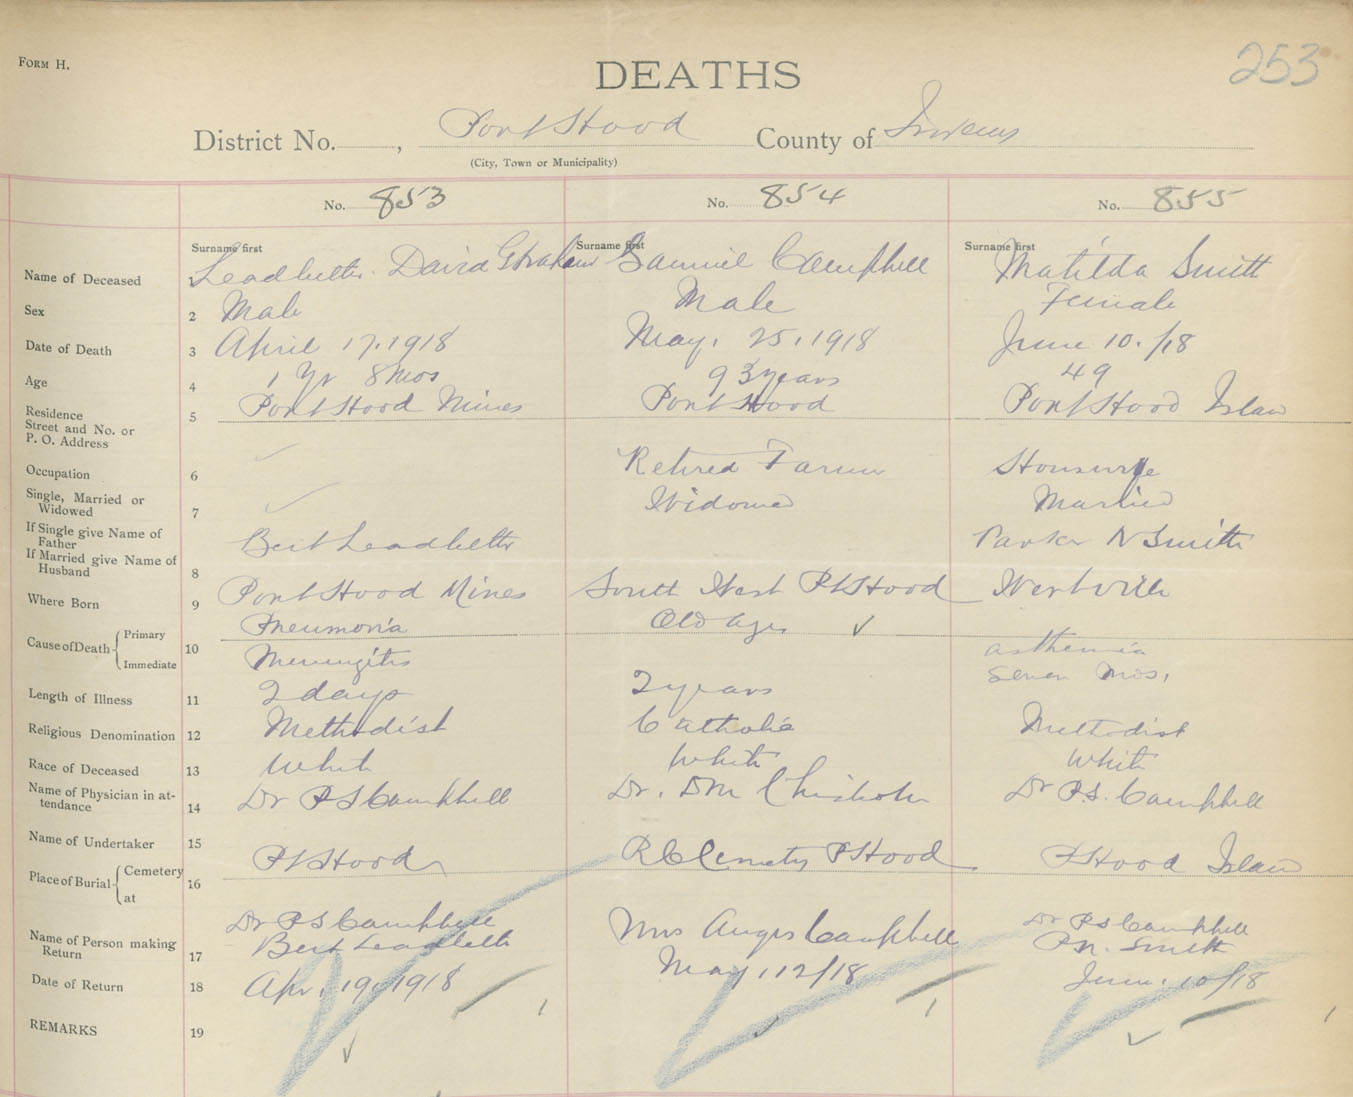 FORM H.
253
DEATHS
District No. , Port Hood County of Inverness
(City, Town or Municipality)
No. 853 No. 854 No. 855
Surname first Surname first Surname first
Name of Deceased 1 Leadbetter. David Graham Samuel Campbell Matilda Smith
Sex 2 Male Male Female
Date of Death 3 April 17. 1918 May. 25. 1918 June 10. /18
Age 4 1 Yr 8 Mos 93 years 49
Residence Street and No. or P. O. Address 5 Port Hood Mines Port Hood Port Hood Islan
Occupation 6 Retired Farmer Housewife
Single, Married or Widowed 7 Widowed Married
If Single give Name of Father
If Married give Name of Husband 8 Bert Leadbetter Parker N Smith
Where Born 9 Port Hood Mines South West Pt Hood
Cause of Death Primary Pneumonia Old age
Immediate 10 Meningitis asthenia
Length of Illness 11 2 days 2 years Seven Mos.
Religious Denomination 12 Methodist Catholic Methodist
Race of Deceased 13 White White White
Name of Physician in attendance 14 Dr P S Campbell Dr. D M Chisholm Dr P.S. Campbell
Name of Undertaker 15
Place of Burial Cemetery at 16 Pt Hood R C Cemetery P Hood P Hood Islan
Name of Person making Return 17 Dr P S Campbell Bert Leadbetter Mrs Angus Campbell Dr P S Campbell P N. Smith
Date of Return 18 Apr. 19. 1918 May. 12/18 June. 10/18
REMARKS 19